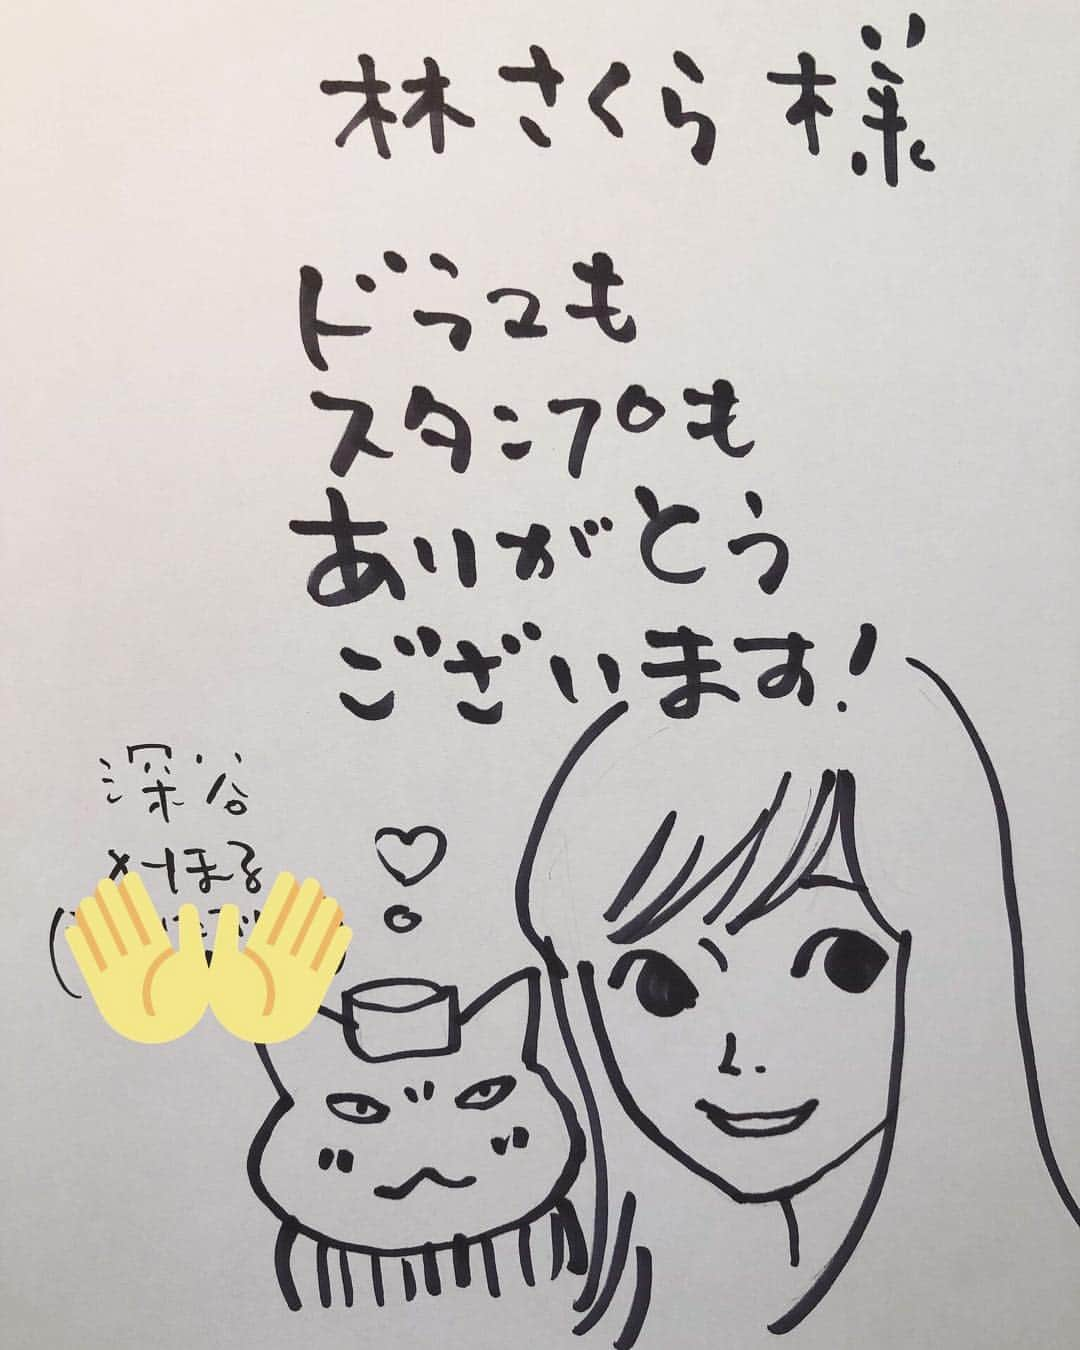 林さくら 様
ドラマも
スタンプも
ありがとう
ございます!
深谷
かほる